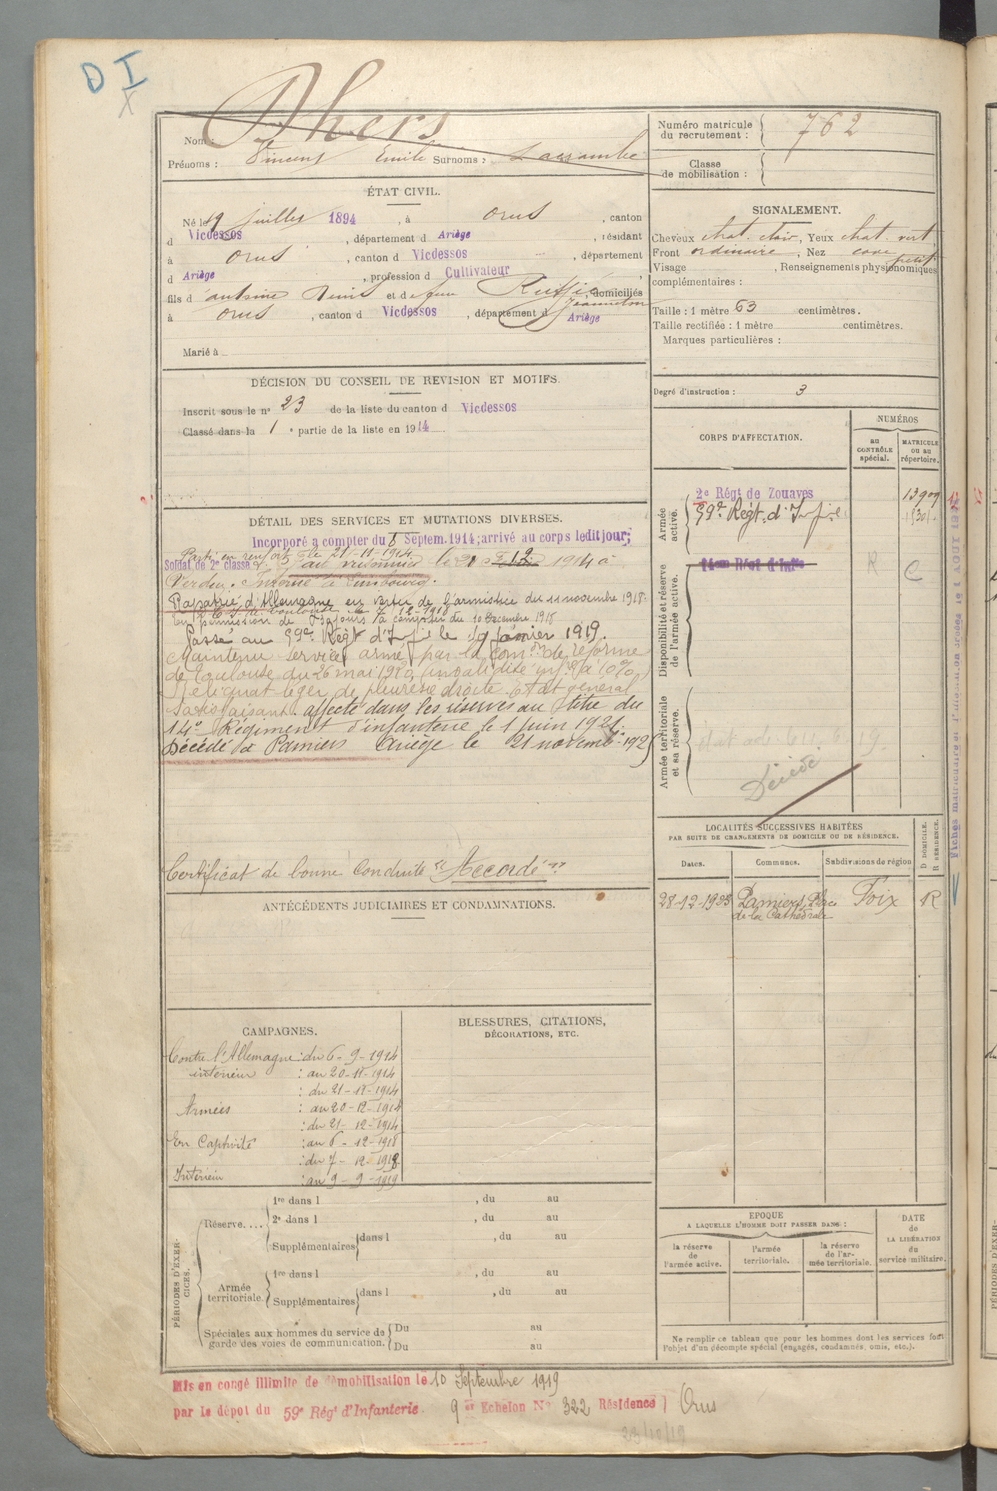 D I
X
Dhers
Nom :
Prénoms : Vincent Emile Surnoms : Lacrambe
Numéro matricule du recrutement : 762
Classe de mobilisation :
ÉTAT CIVIL.
Né le 19 juillet 1894, à Orus, canton
d Vicdessos, département d Ariège, résidant
à Orus, canton d Vicdessos, département
d Ariège, profession d Cultivateur
fils d'Antoine Denis et de feu Ruffié Jeanneton, domiciliés
à Orus, canton d Vicdessos, département d Ariège
Marié à
SIGNALEMENT.
Cheveux chat. clair, Yeux chat. vert.
Front ordinaire, Nez cave petit
Visage , Renseignements physionomiques
complémentaires :
Taille : 1 mètre 63 centimètres.
Taille rectifiée : 1 mètre centimètres.
Marques particulières :
Degré d'instruction : 3
DÉCISION DU CONSEIL DE REVISION ET MOTIFS.
Inscrit sous le n° 23 de la liste du canton d Vicdessos
Classé dans la 1e partie de la liste en 1914
CORPS D'AFFECTATION.
NUMÉROS
au CONTRÔLE spécial.
MATRICULE ou au répertoire.
Armée active.
2e Régt de Zouaves 13909
59e Régt d'Infie
Disponibilité et réserve de l'armée active.
14eme Régt d'Infie
R C
Armée territoriale et sa réserve.
Décédé
DÉTAIL DES SERVICES ET MUTATIONS DIVERSES.
Incorporé à compter du 6 Septem. 1914; arrivé au corps ledit jour;
Parti en renfort le 21-11-1914
Soldat de 2e classe Fait prisonnier le 21 12 1914 à
Verdun. Interné à Limbourg.
Rapatrié d'Allemagne en vertu de l'armistice du 11 novembre 1918.
En permission de jours à compter du 10 Décembre 1918
Passé au 59e Régt d'Infie le 19 Janvier 1919.
Maintenu service armé par la Comon de réforme
de Toulouse du 26 mai 1919, invalidité infre à 10%
Reliquat léger de pleurésie droite. Etat général
satisfaisant. affecté dans les réserves au titre du
14e Régiment d'infanterie le 1 juin 1921.
Décédé à Pamiers Ariège le 21 novembre 1925
Certificat de bonne conduite "Accordé"
LOCALITÉS SUCCESSIVES HABITÉES
PAR SUITE DE CHANGEMENTS DE DOMICILE OU DE RÉSIDENCE.
Dates. Communes. Subdivisions de région
D DOMICILE. R RÉSIDENCE.
28-12-1923 Pamiers, Place de la Cathédrale Foix R
ANTÉCÉDENTS JUDICIAIRES ET CONDAMNATIONS.
CAMPAGNES.
Contre l'Allemagne : du 6-9-1914
intérieur : au 20-11-1914
: du 21-11-1914
Armées : au 20-12-1914
: du 21-12-1914
En Captivité : au 6-12-1918
: du 7-12-1918
Intérieur : au 9-9-1919
BLESSURES, CITATIONS,
DÉCORATIONS, ETC.
PÉRIODES D'EXERCICES.
Réserve....
1re dans l , du au
2e dans l , du au
Supplémentaires dans l , du au
Armée territoriale.
1re dans l , du au
Supplémentaires dans l , du au
Spéciales aux hommes du service de garde des voies de communication.
Du au
Du au
EPOQUE
A LAQUELLE L'HOMME DOIT PASSER DANS :
la réserve de l'armée active.
l'armée territoriale.
la réserve de l'armée territoriale.
DATE de LA LIBÉRATION du service militaire.
Ne remplir ce tableau que pour les hommes dont les services font
l'objet d'un décompte spécial (engagés, condamnés, omis, etc.).
Mis en congé illimité de démobilisation le 10 Septembre 1919
par le dépôt du 59e Régt d'Infanterie 9me Echelon N° 322 Résidence Orus
23/10/19